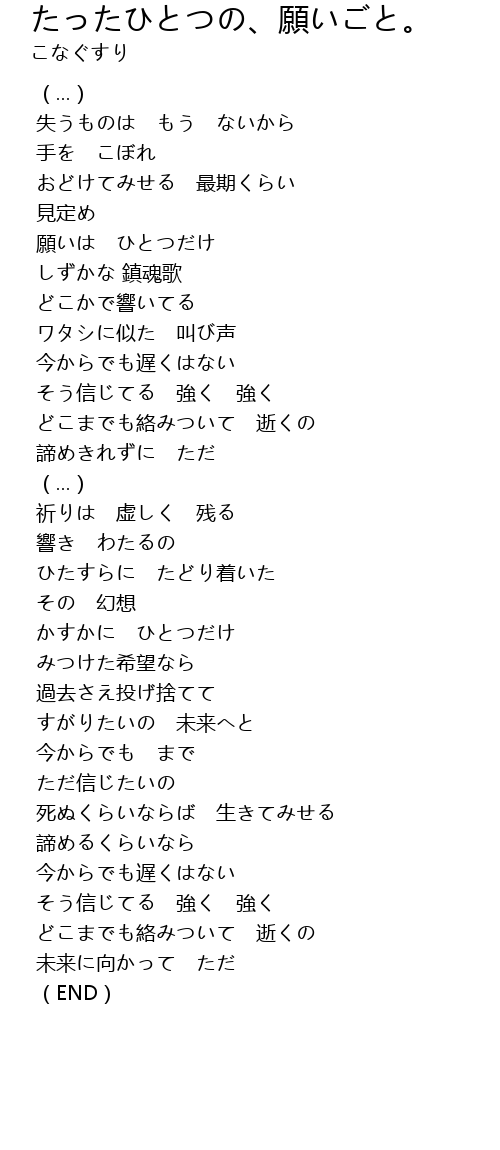 たったひとつの、願いごと。
こなぐすり
( ... )
失うものは　もう　ないから
手を　こぼれ
おどけてみせる　最期くらい
見定め
願いは　ひとつだけ
しずかな 鎮魂歌
どこかで響いてる
ワタシに似た　叫び声
今からでも遅くはない
そう信じてる　強く　強く
どこまでも絡みついて　逝くの
諦めきれずに　ただ
( ... )
祈りは　虚しく　残る
響き　わたるの
ひたすらに　たどり着いた
その　幻想
かすかに　ひとつだけ
みつけた希望なら
過去さえ投げ捨てて
すがりたいの　未来へと
今からでも　まで
ただ信じたいの
死ぬくらいならば　生きてみせる
諦めるくらいなら
今からでも遅くはない
そう信じてる　強く　強く
どこまでも絡みついて　逝くの
未来に向かって　ただ
( END )